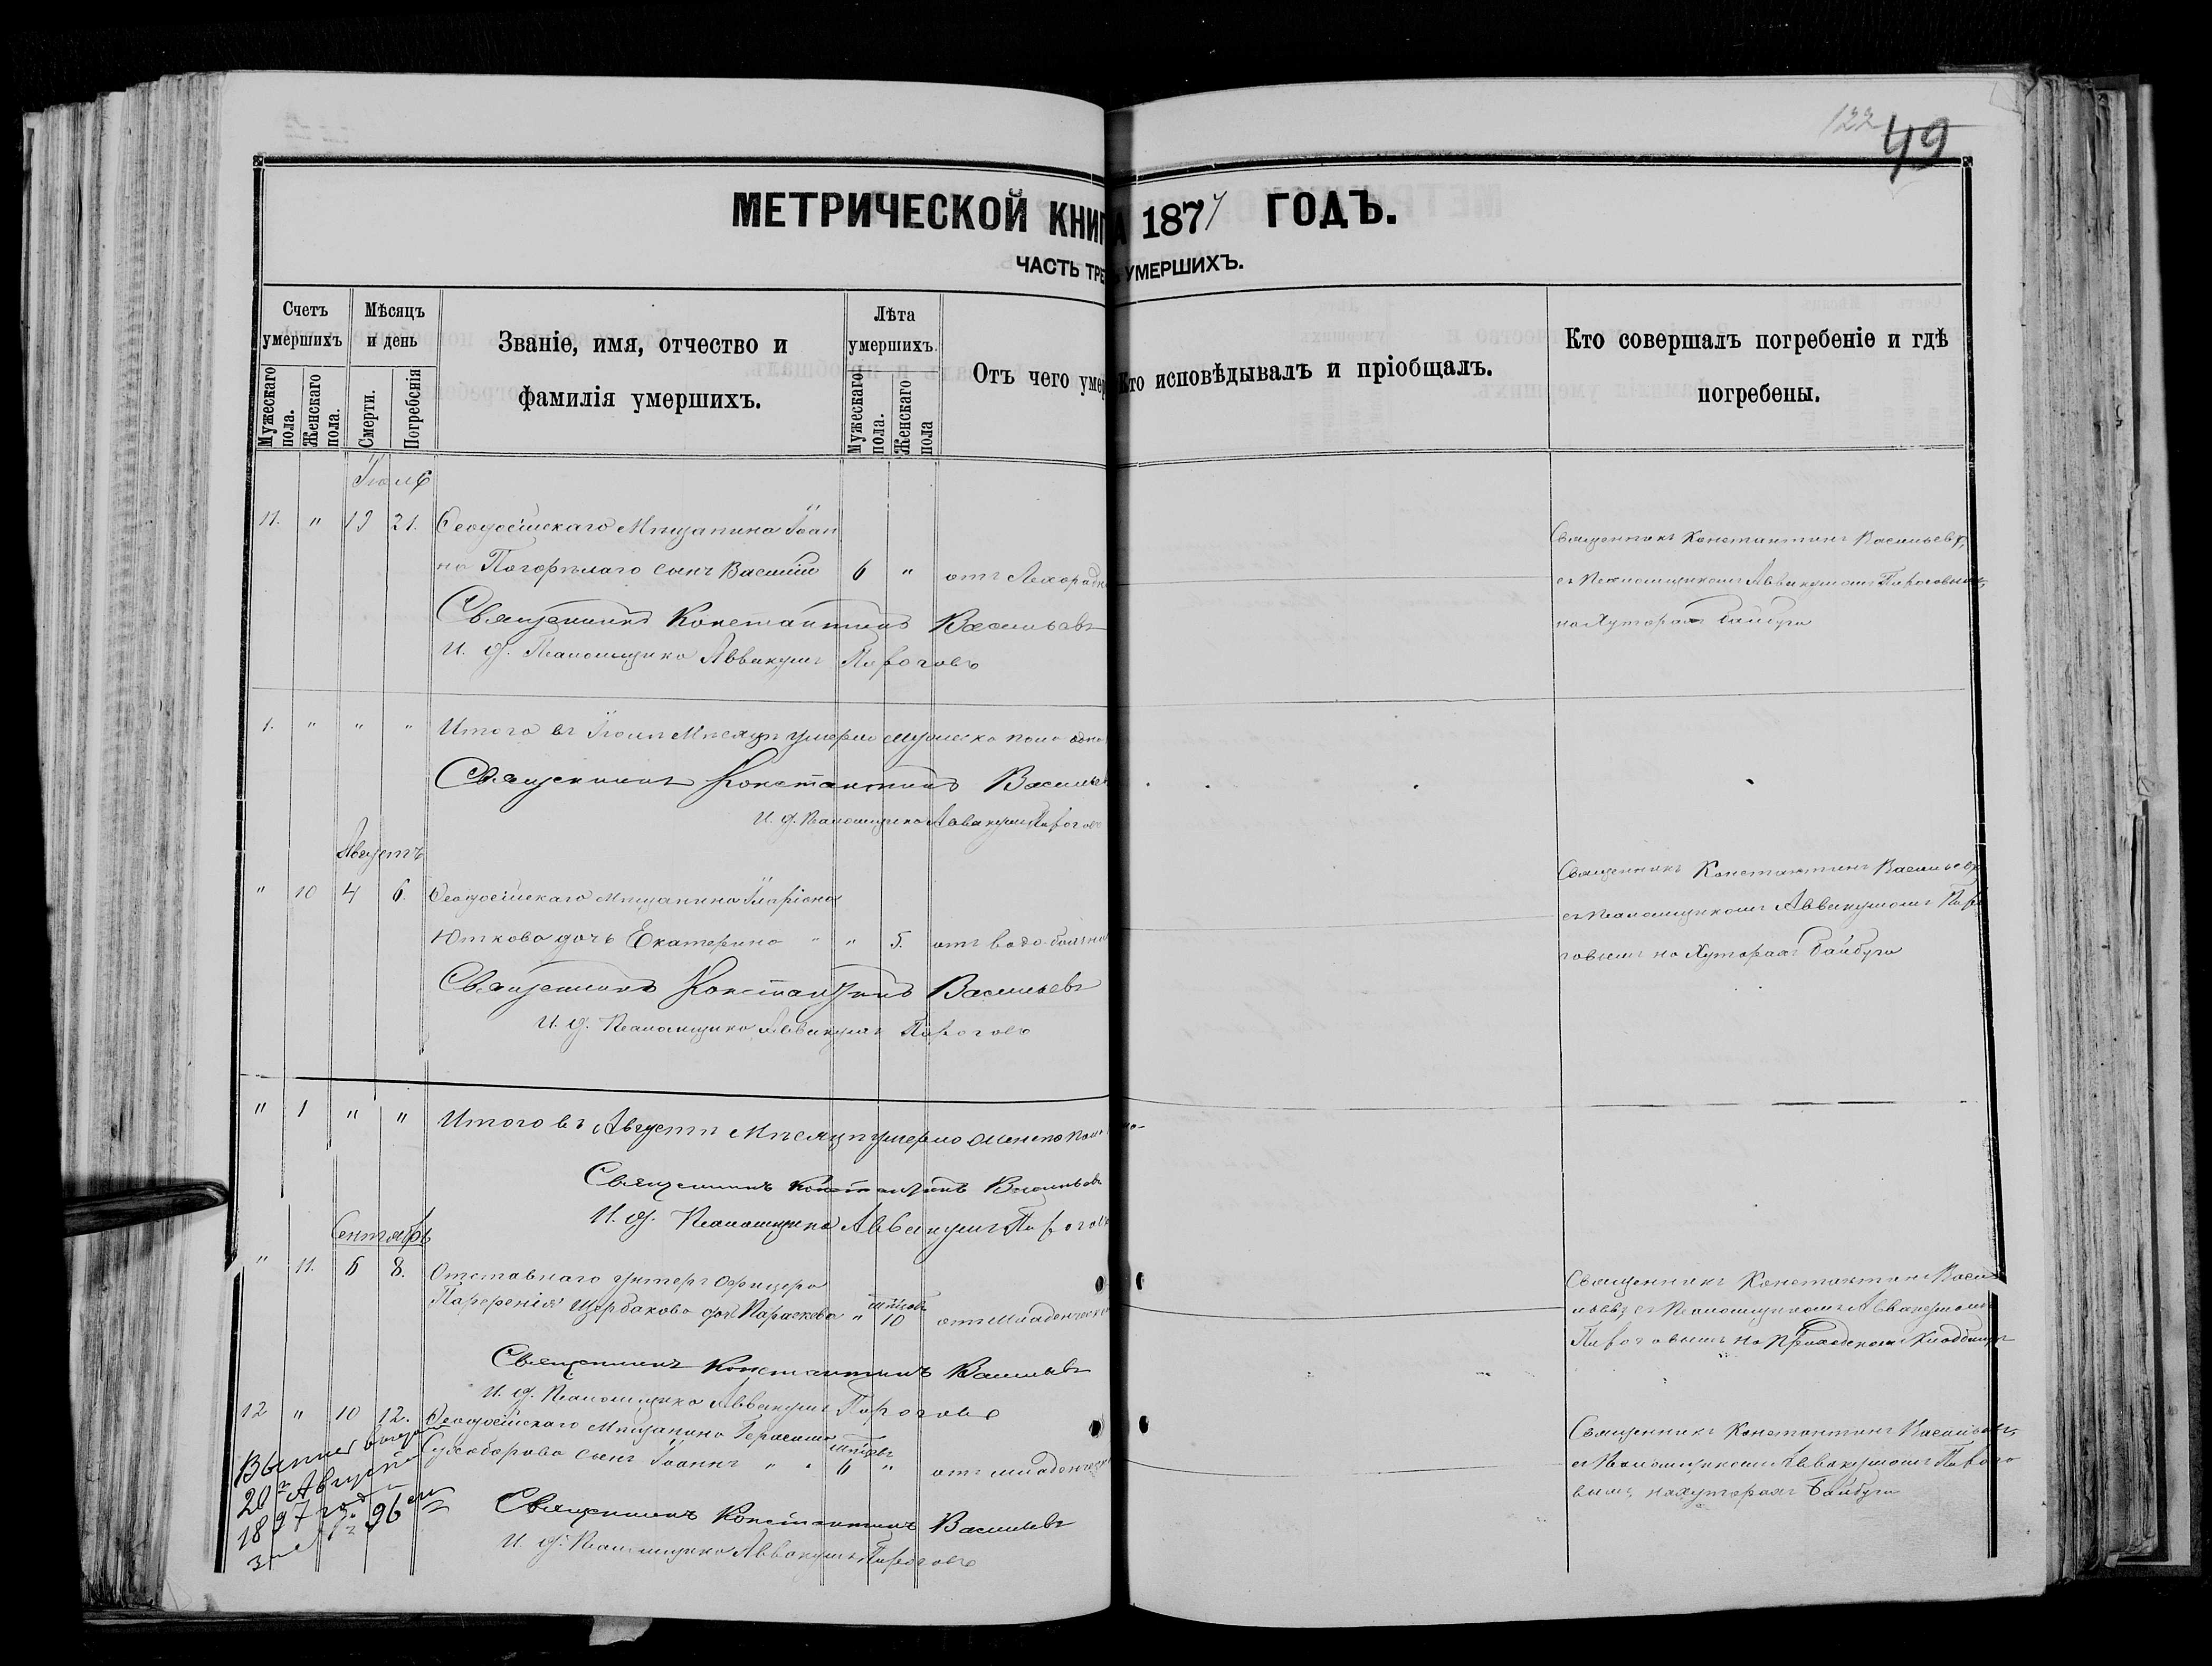 122
49
МЕТРИЧЕСКОЙ КНИГ А 1877 ГОДЪ.
ЧАСТЬ ТРЕ УМЕРШИХЪ.
Счетъ умершихъ
Мужескаго пола.
Женскаго пола.
Мѣсяцъ и день
Смерти.
Погребенія
Званіе, имя, отчество и
фамилія умершихъ.
Лѣта умершихъ.
Мужескаго пола.
Женскаго пола
Отъ чего умер
Кто исповѣдывалъ и пріобщалъ.
Кто совершалъ погребеніе и гдѣ
погребены.
11. " 19 21. Ѳеодосійскаго Мѣщанина Іоан
на Погорѣлаго сынъ Василій 6 " отъ Лихорадк
Священникъ Константинъ Васильевъ
И. д. Псаломщика Аввакумъ Пироговъ
Священникъ Константинъ Васильевъ,
съ Псаломщикомъ Аввакумомъ Пироговымъ,
на Хуторахъ Байбуга
1. " " " Итого въ Мѣсяцѣ умерло мужеска пола одна
Священникъ Константинъ Василье
И. д. Псаломщика Аввакумъ Пирогов
Августъ
" 10 4 6. Ѳеодосійскаго Мѣщанина Иларіона
Юткова дочь Екатерина " " 5. отъ водо-боязни
Священникъ Константинъ Васильевъ
И. д. Псаломщика Аввакумъ Пироговъ
Священникъ Константинъ Васильевъ
съ Псаломщикомъ Аввакумомъ Пиро
говымъ на Хуторахъ Байбуга
" 1 " " Итого въ Августѣ Мѣсяцѣ умерло женска пол
Священникъ Константинъ Васильевъ
И. д. Псаломщика Аввакумъ Пирогов
Сентябрь
" 11. 6 8. Отставнаго унтеръ Офицера
Парфенія Щербакова дочь Параскева " 10 отъ Младенческ
Священникъ Константинъ Васильевъ
И. д. Псаломщика Аввакумъ Пироговъ
Священникъ Константинъ Васи
льевъ, съ Псаломщикомъ Аввакумомъ
Пироговымъ на Приходскомъ Кладбищѣ
12 " 10 12. Ѳеодосійскаго Мѣщанина Герасима
Сухоборова сынъ Іоаннъ " " 6 " отъ младенческ
Священникъ Константинъ Васильевъ
И. д. Псаломщика Аввакумъ Пироговъ
Священникъ Константинъ Васильевъ,
съ Псаломщикомъ Аввакумомъ Пирого
вымъ, на хуторахъ Байбуга
20 Августа
1897 года
за № 96